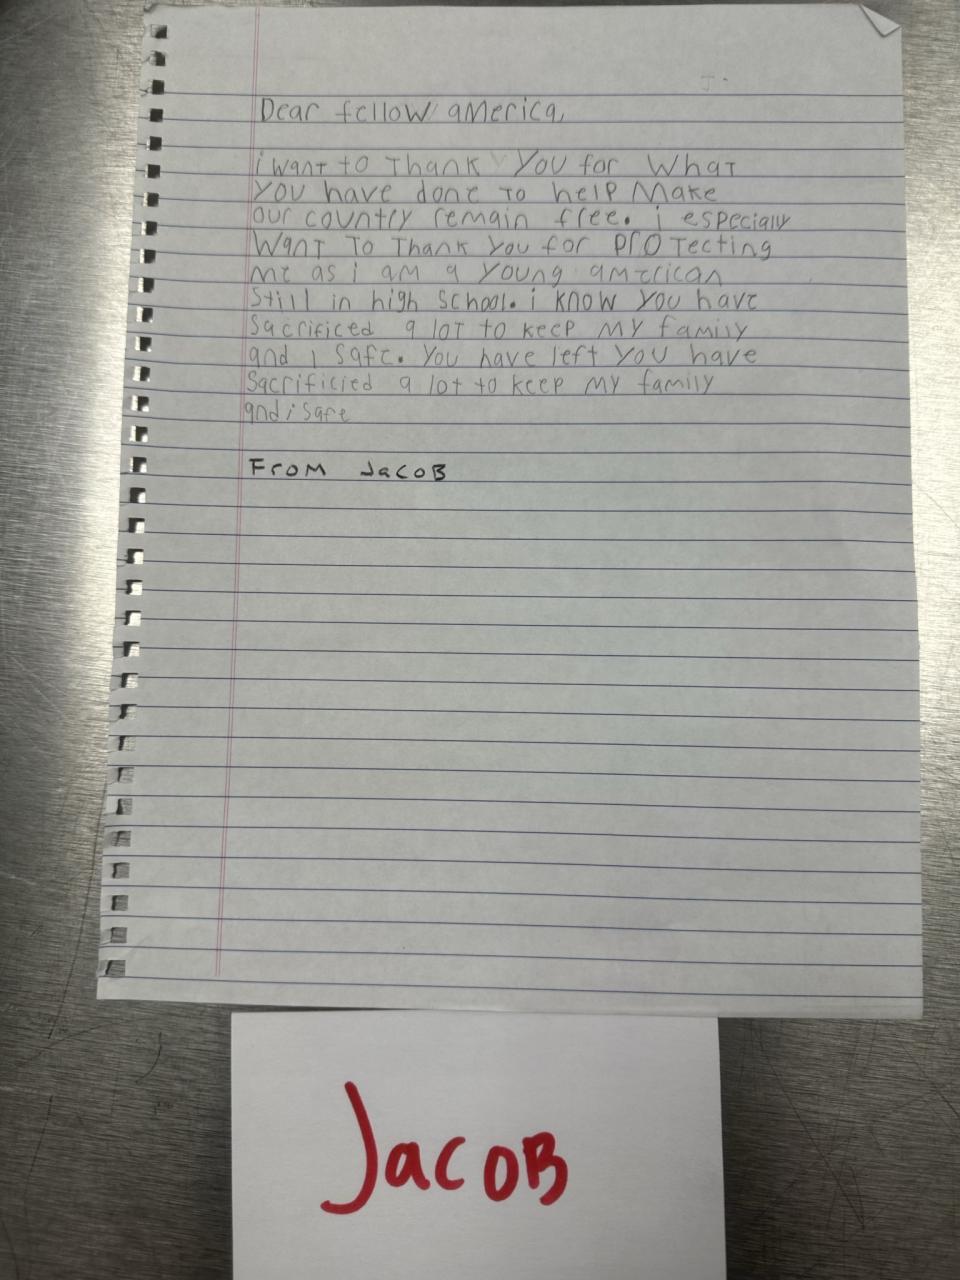 Dear fellow america,
i want to Thank You for What
You have done To help Make
our country remain free. i especialy
Want To Thank you for protecting
me as i am a young american
Still in high school. i know you have
Sacrificed a lot to keep my family
and i safe. You have left You have
Sacrificied a lot to keep my family
and i safe
From Jacob
Jacob